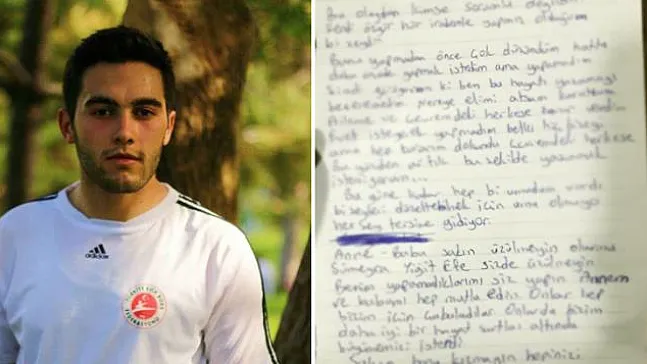 adidas
FEDERASYONU
Bu olaydan kimse sorumlu değildir
Kendi özgür hür irademle yapmış olduğum
bi şeydir
Bunu yapmadan önce çok düşündüm hatta
daha önce yapmak istedim ama yapamadım
ki ben bu hayatı yaşamayı
beceremedim nereye elimi atsam kuruttum
Aileme ve çevremdeki herkese zarar verdim
Evet isteyerek yapmadım belki hiç bişeyi
ama hep zararım dokundu çevremdeki herkese
Bu yüzden artık bu şekilde yaşamak
istemiyorum...
Bu güne kadar hep bi umudum vardı
bişeyleri düzeltebilmek için ama olmuyo
her şey tersine gidiyor.
Anne - Baba sakın üzülmeyin olurmu
Sümeyra Yiğit Efe sizde üzülmeyin
Benim yapamadıklarımı siz yapın Annem
ve babamı hep mutlu edin. Onlar hep
bizim için çabaladılar. Onlarda bizim
daha iyi bir hayat şartları altında
büyümemizi istendi
Sakın bana kızmayın hepinizi